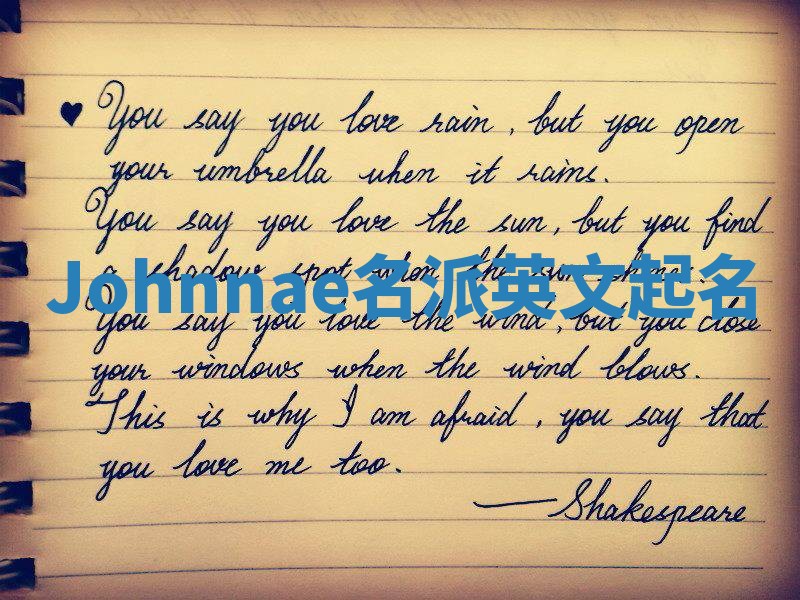 ♥ You say you love rain, but you open
your umbrella when it rains.
You say you love the sun, but you find
a shadow spot when the sun shines.
Johnnae名派英文起名
You say you love the wind, but you close
your windows when the wind blows.
This is why I am afraid, you say that
you love me too.
—Shakespeare